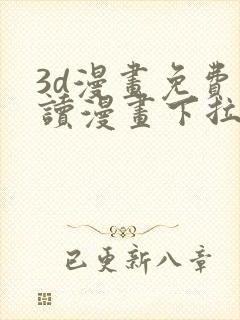 3d漫畫免費
讀漫畫下拉
已更新八章